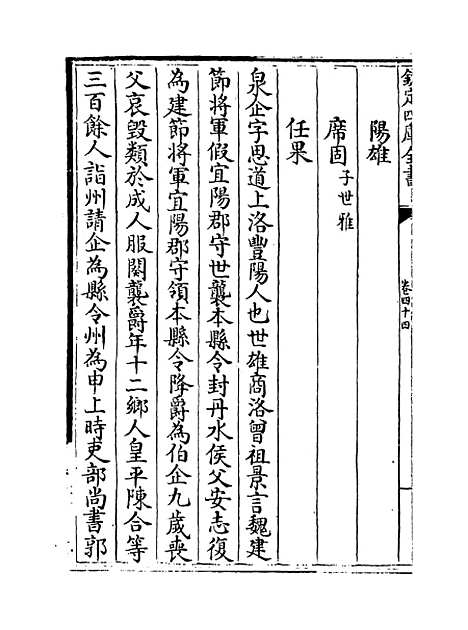 欽定四庫全書
卷四十四
陽雄
席固子世雅
任果
泉企字思道上洛豐陽人也世雄商洛曾祖景言魏建
節將軍假宜陽郡守世襲本縣令封丹水侯父安志復
為建節將軍宜陽郡守領本縣令降爵為伯企九歲喪
父哀毀類於成人服闋襲爵年十二鄉人皇平陳合等
三百餘人詣州請企為縣令州為申上時吏部尚書郭